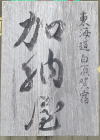 東海道白須賀宿
加納屋